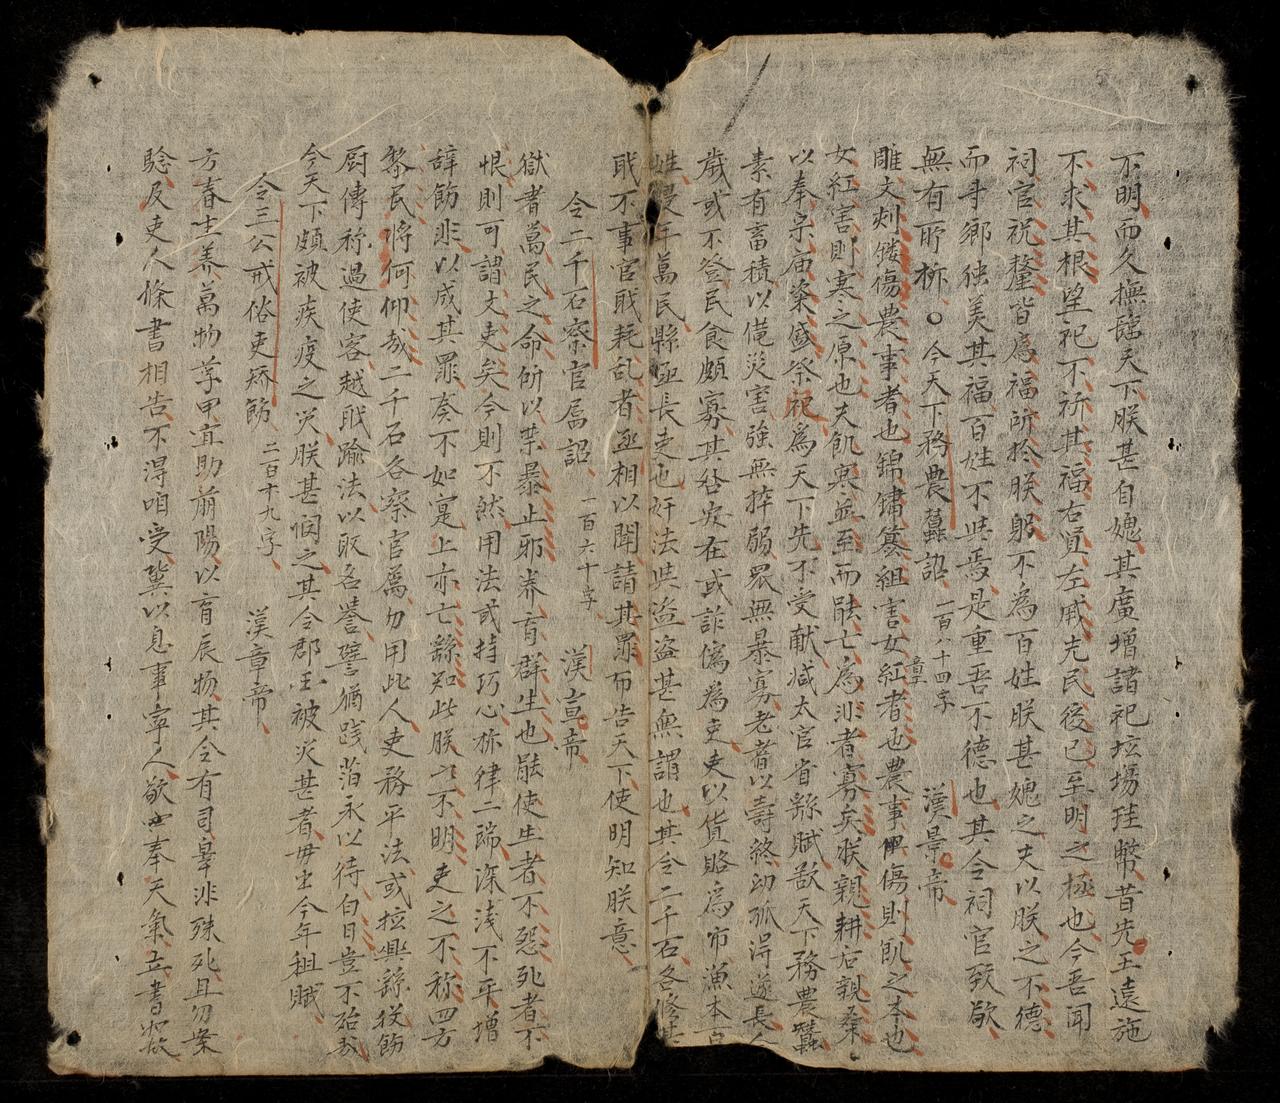 不明而久撫臨天下朕甚自媿其廣增諸祀坛場珪幣昔先王遠施
不求其根望祀不祈其福右贤左戚先民後己至明之極也今吾聞
祠官祝釐皆㱕福於朕躬不為百姓朕甚媿之夫以朕之不德
而専鄉独美其福百姓不与焉是重吾不德也其令祠官致敬
無有所祈○今天下務農蠶詔 一百八十四字 漢景帝
雕文刻鏤傷農事者也錦繡纂組害女紅者也農事傷則飢之本也
女紅害則寒之原也夫飢寒並至而能亡為非者寡矣朕親耕后親桑
以奉宗庙粢盛祭祀為天下先不受献减太官省繇賦欲天下務農蠶
素有畜積以俻災害強無攘弱眾無暴寡老耆以壽終幼孤淂遂長今
歲或不登民食頗寡其咎安在或詐偽為吏吏以貨賂為市漁本百
姓侵牟萬民縣丞長吏也奸法与盗盗甚無謂也其令二千石各修其
职不事官职耗乱者丞相以聞請其罪布告天下使明知朕意
令二千石察官属詔 一百六十字 漢宣帝
獄者萬民之命所以禁暴止邪养育群生也能使生者不怨死者不
恨則可謂文吏矣今則不然用法或持巧心析律二端深浅不平增
辞飾非以成其罪奏不如寔上亦亡繇知此朕之不明吏之不称四方
黎民将何仰哉二千石各察官属勿用此人吏務平法或擅興繇役飾
厨傳称過使客越职踰法以取名譽譬猶践薄氷以待白日豈不殆哉
今天下頗被疾疫之灾朕甚悯之其令郡国被灾甚者毋出今年租賦
令三公戒俗吏矫飾 二百十九字 漢章帝
方春生养萬物莩甲宜助萠陽以育辰物其令有司辠非殊死且勿案
騐及吏人條書相告不淂听受冀以息事寜人敬奉天氣立書如故